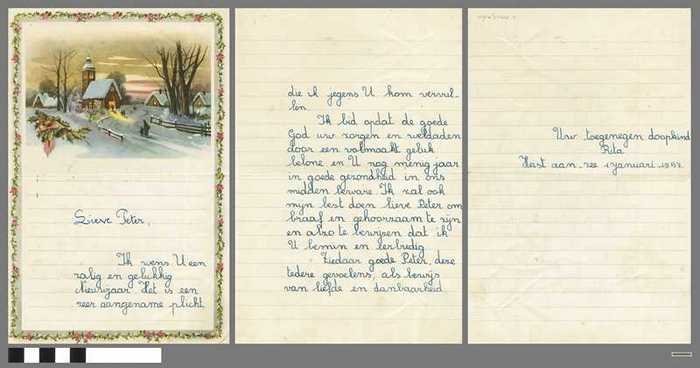 Lieve Peter,
Ik wens U een
zalig en gelukkig
Nieuwjaar. Het is een
zeer aangename plicht
die ik jegens U kom vervul-
len.
Ik bid opdat de goede
God uw zorgen en weldaden
door een volmaakt geluk
belone en U nog menig jaar
in goede gezondheid in ons
midden beware. Ik zal ook
mijn best doen lieve Peter om
braaf en gehoorzaam te zijn
en alzo te bewijzen dat ik
U bemin en eerbiedig.
Ziedaar goede Peter, deze
tedere gevoelens, als bewijs
van liefde en dankbaarheid
Uw toegenegen doopkind
Rita
Heist aan-zee 1 januari